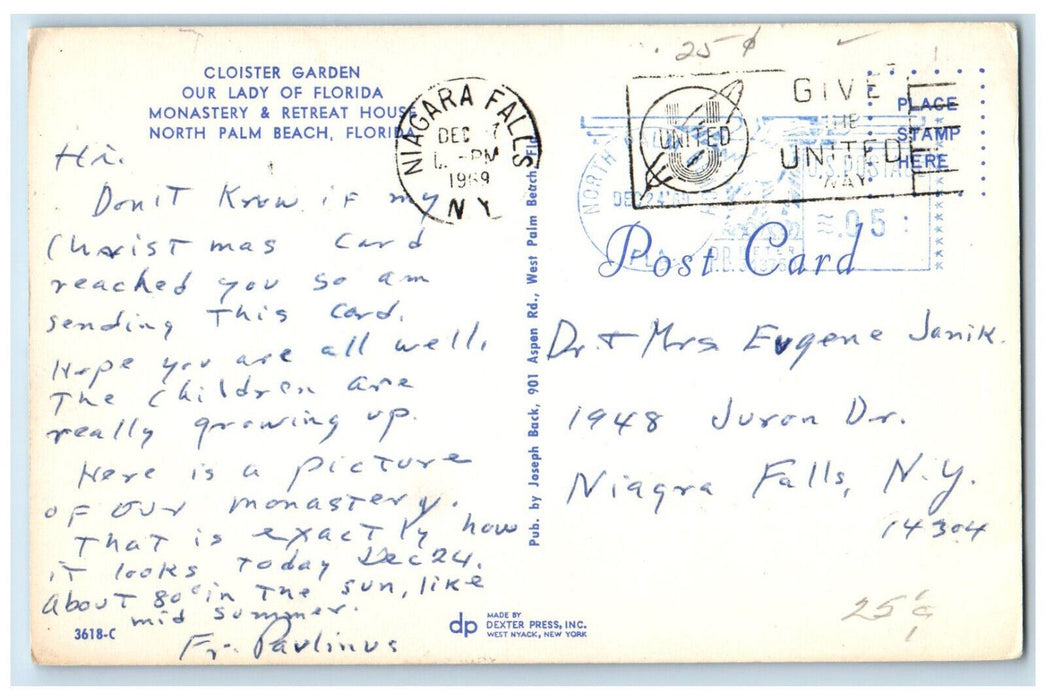 CLOISTER GARDEN
OUR LADY OF FLORIDA
MONASTERY & RETREAT HOUSE
NORTH PALM BEACH, FLORIDA
Hi.
Don't Know if my
Christmas Card
reached you so am
sending This Card.
Hope you are all well.
The Children are
really growing up.
Here is a picture
of our monastery.
That is exactly how
it looks Today Dec 24.
About 80° in The sun, like
mid summer.
Fr. Paulinus
3618-C
NIAGARA FALLS
DEC
PM
1969
NY
Pub. by Joseph Back, 901 Aspen Rd., West Palm Beach, Fla.
dp
MADE BY
DEXTER PRESS, INC.
WEST NYACK, NEW YORK
25¢
GIVE
THE
UNITED
WAY
UNITED
PLACE
STAMP
HERE
NORTH
DEC 24
U.S. POSTAGE
.05
Post Card
Dr. + Mrs Eugene Janik.
1948 Juron Dr.
Niagra Falls, N.Y.
14304
25¢